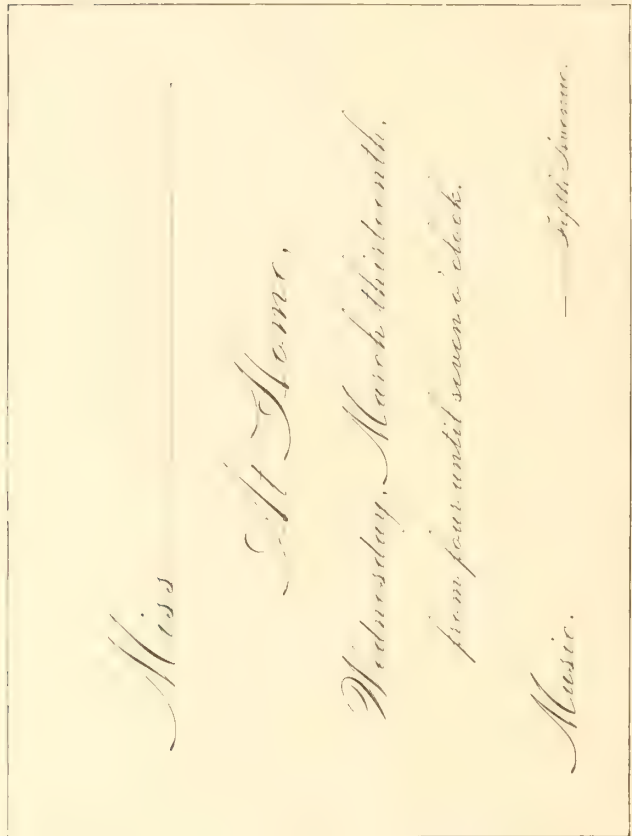 Miss
At Home.
Wednesday, March thirteenth,
from four until seven o'clock.
Music.
Fifth Avenue.